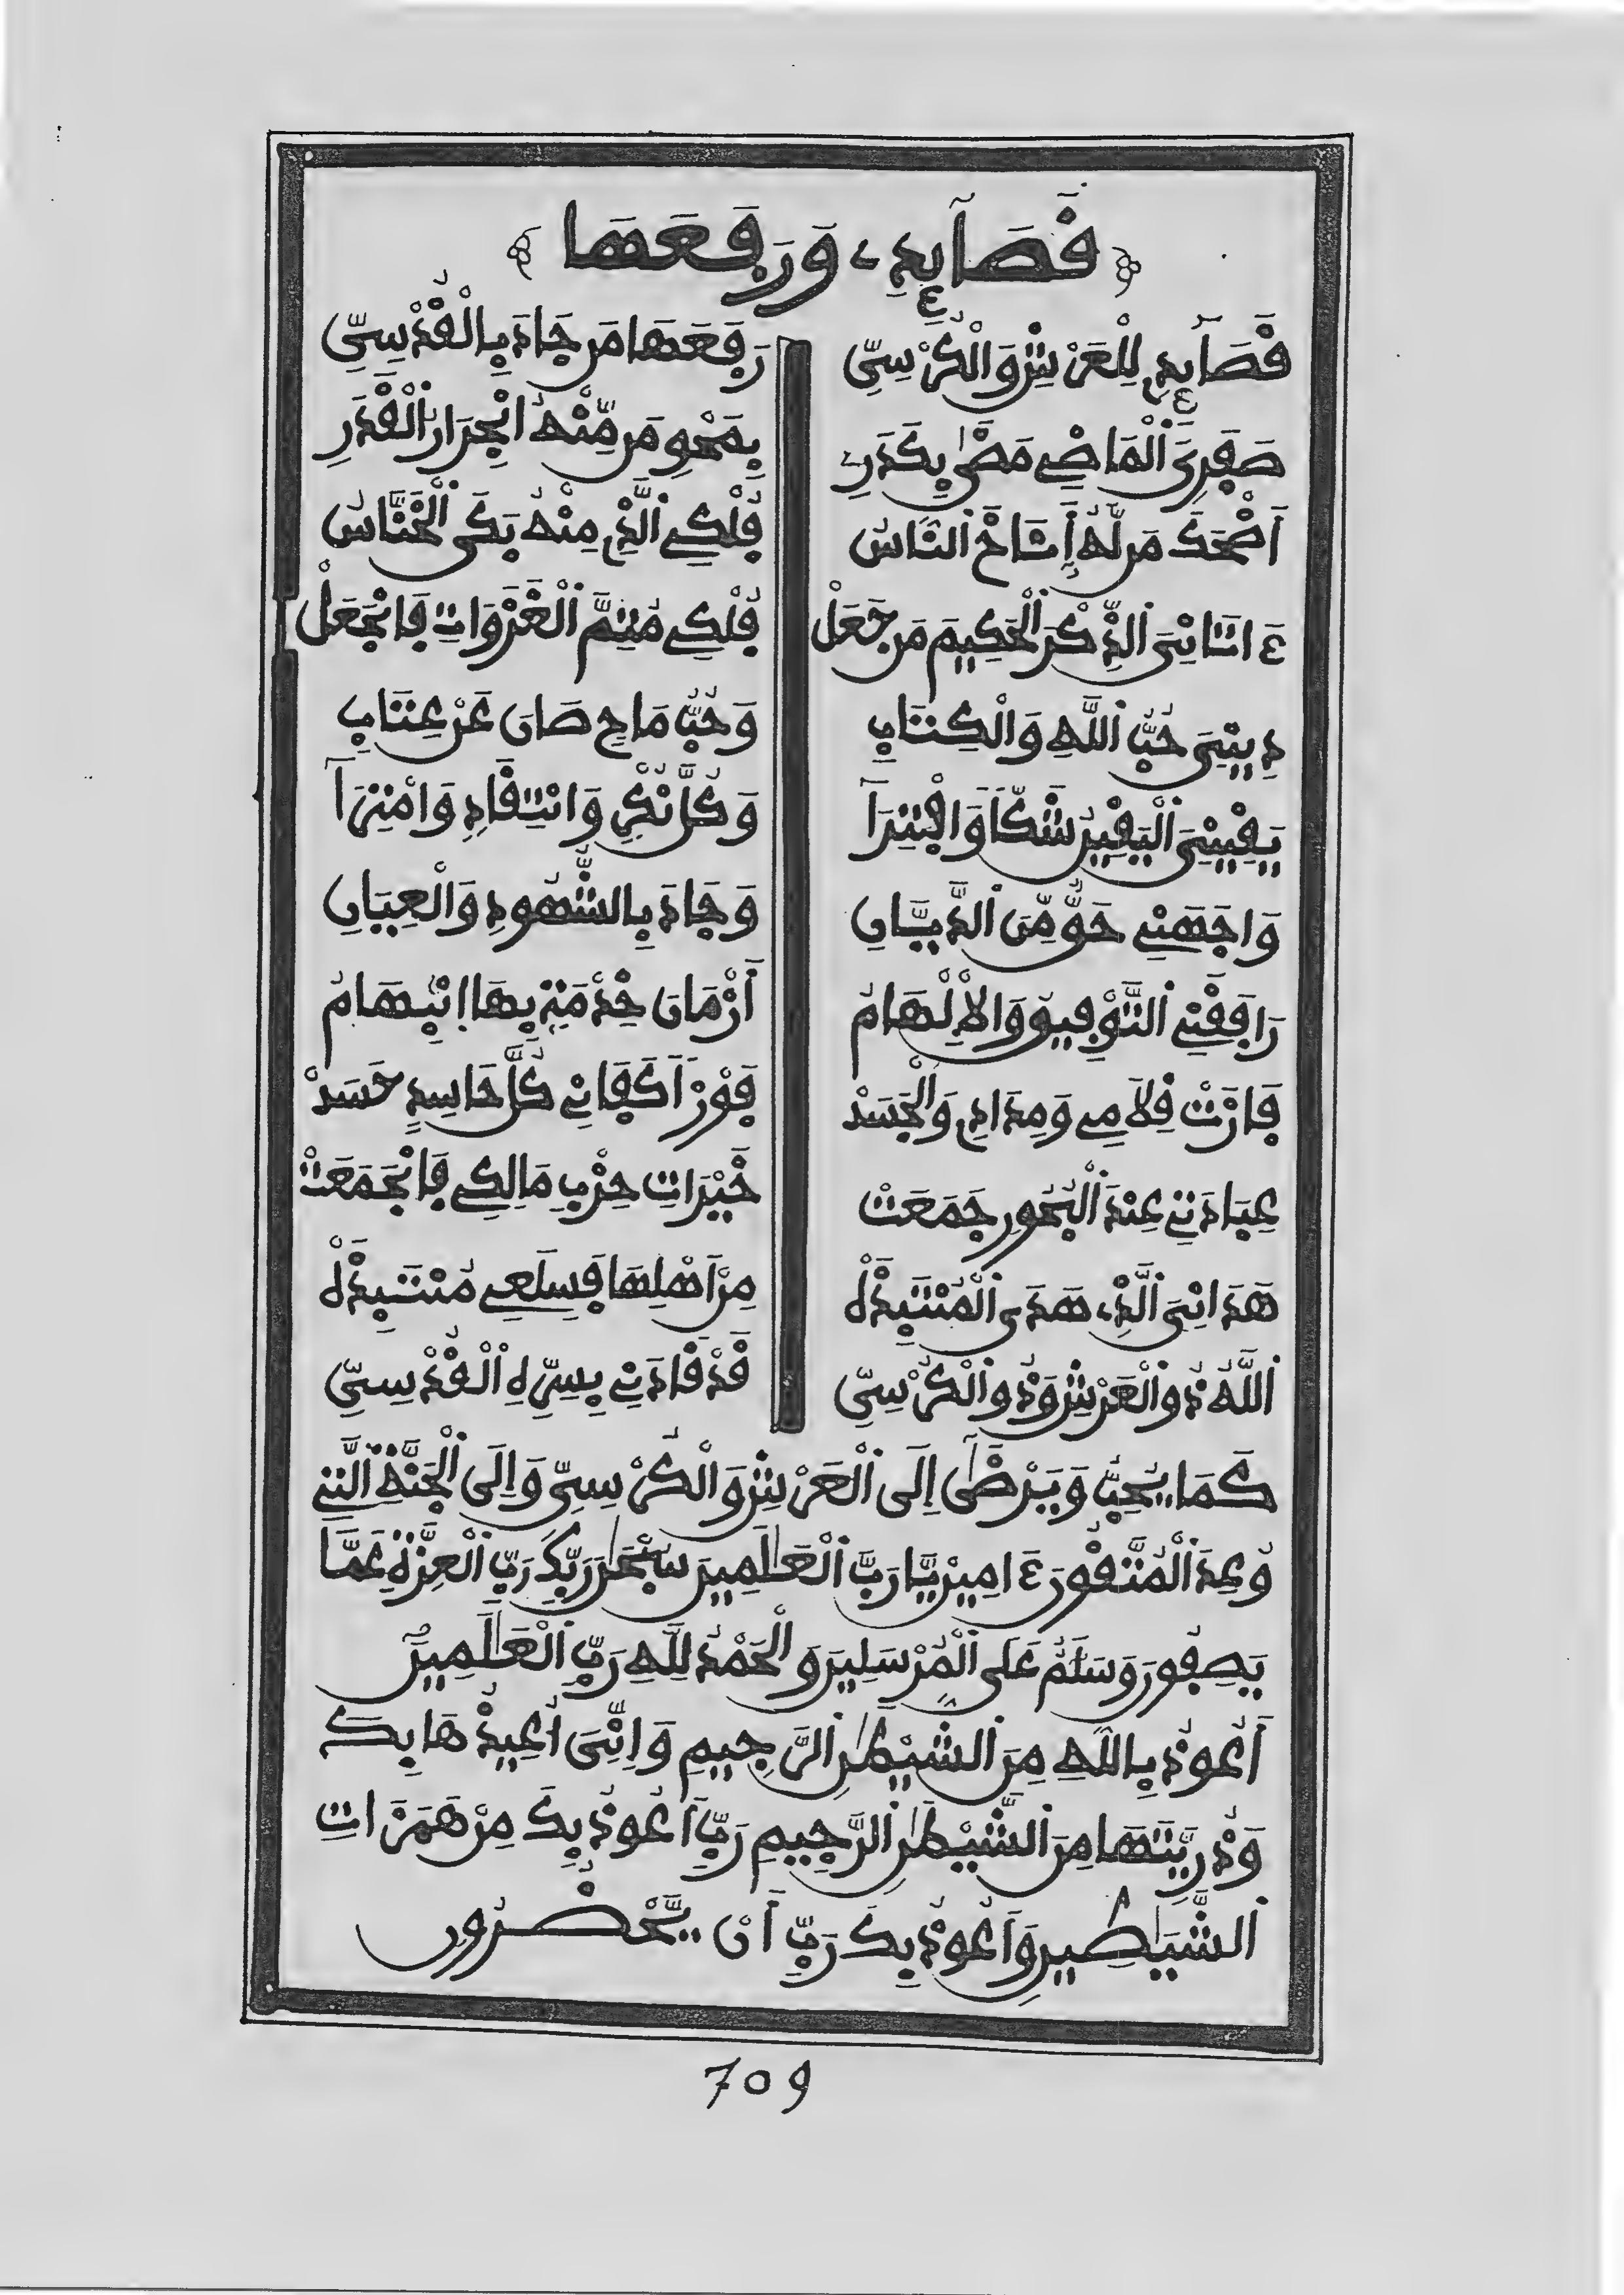 فَصَآىِٕدِے، وَرَفَعَهَا
فَصَآىِٕدِے لِلْعَرْشِ وَالْكُرْسِيِّ رَفَعَهَا مَن جَادَ بِالْقُدْسِيِّ
صَفَرِيَ الْمَاضِے مَضَىٰ بِكَدَرِ بِمَحْوِ مَن مِّنْهُ انْجِرَارُ الْقَدَرِ
أَضْحَكَ مَن لَّهُ أَشَاخَ النَّاسُ فُلْكِے الَّذِے مِنْهُ بَكَى الْخَنَّاسُ
ءَاتَانِيَ الذِّكْرَ الْحَكِيمَ مَن جَعَلْ فُلْكِے مُتِمَّ الْغَزَوَاتِ فَانْجَعَلْ
دِينِيَ حُبُّ اللَّهِ وَالْكِتَابِ وَحُبُّ مَاحٍ صَانَ عَنْ عِتَابِ
يَقِينِيَ الْيَقِينُ شَكّاً وَافْتِرَآ وَكُلَّ نُكْرٍ وَانْتِقَادٍ وَامْتِرَآ
وَاجَهَنِے حَقٌّ مِّنَ الدَّيَّانِ وَجَادَ بِالشُّهُودِ وَالْعِيَانِ
رَافَقَنِے التَّوْفِيقُ وَالْإِلْهَامُ أَزْمَانَ خِدْمَةٍ بِهَا انْبِهَامُ
فَازَتْ فِلَامِے وَمِدَادِے وَالْجَسَدْ فَوْزاً كَفَانِے كُلَّ حَاسِدٍ حَسَدْ
عِبَادَتِے عِنْدَ الْبُحُورِ جَمَعَتْ خَيْرَاتِ حِزْبِ مَالِكِے فَانْجَمَعَتْ
هَدَانِيَ الَّذِے، هَدَى الْمُنْتَبِذَهْ مِنْ أَهْلِهَا فَسِلَعِے مُنْتَبِذَهْ
اللَّهُ ذُو الْعَرْشِ وَذُو الْكُرْسِيِّ قَدْ قَادَنِے بِسِرِّهِ الْقُدْسِيِّ
كَمَا يُحِبُّ وَيَرْضَىٰ إِلَى الْعَرْشِ وَالْكُرْسِيِّ وَإِلَى الْجَنَّةِ الَّتِے
وُعِدَ الْمُتَّقُونَ ءَامِينْ يَّا رَبَّ الْعَٰلَمِينَ سُبْحَٰنَ رَبِّكَ رَبِّ الْعِزَّةِ عَمَّا
يَصِفُونَ وَسَلَٰمٌ عَلَى الْمُرْسَلِينَ وَالْحَمْدُ لِلَّهِ رَبِّ الْعَٰلَمِينَ
أَعُوذُ بِاللَّهِ مِنَ الشَّيْطَٰنِ الرَّجِيمِ وَإِنِّيَ أُعِيذُهَا بِكَ
وَذُرِّيَّتَهَا مِنَ الشَّيْطَٰنِ الرَّجِيمِ رَبِّ أَعُوذُ بِكَ مِنْ هَمَزَاتِ
الشَّيَٰطِينِ وَأَعُوذُ بِكَ رَبِّ أَنْ يَّحْضُرُونِ
709